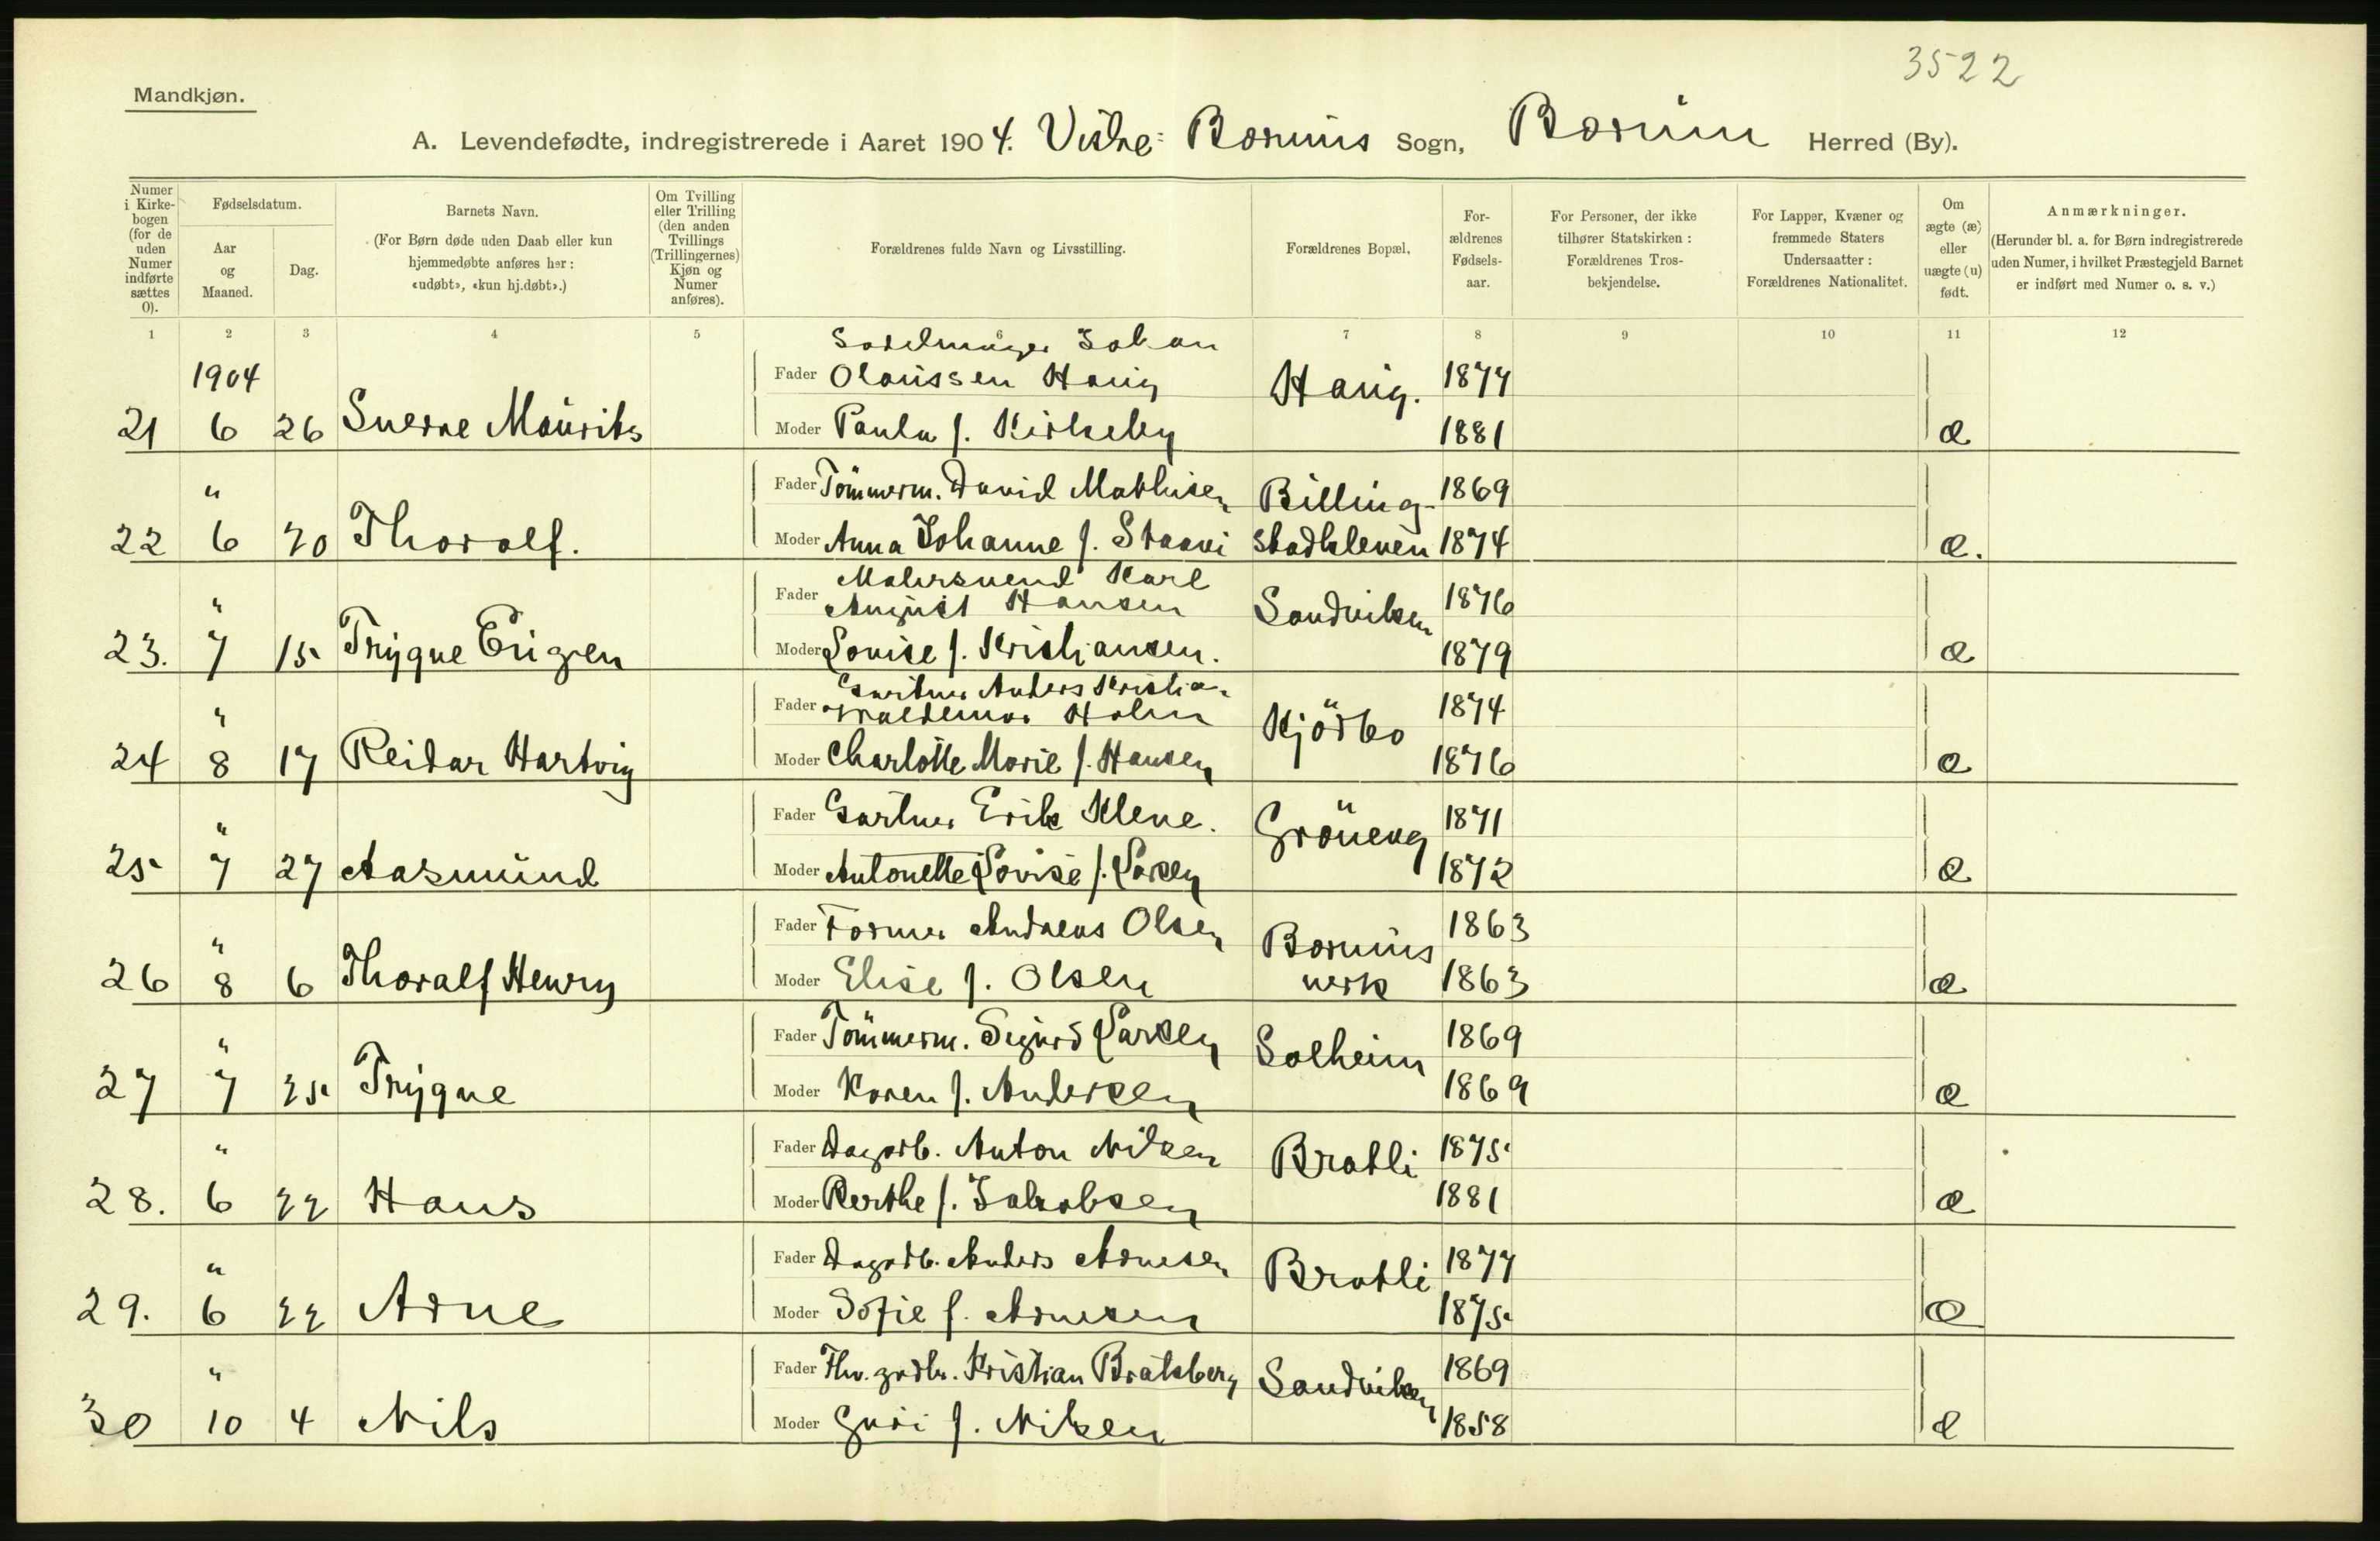 3522
Mandkjøn.
A. Levendefødte, indregistrerede i Aaret 1904. Vestre Bærums Sogn, Bærum Herred (By).
Numer i Kirkebogen (for de uden Numer indførte sættes 0).
Fødselsdatum.
Aar og Maaned.
Dag.
Barnets Navn.
(For Børn døde uden Daab eller kun hjemmedøbte anføres her: «udøbt», «kun hj.døbt».)
Om Tvilling eller Trilling (den anden Tvillings (Trillingernes) Kjøn og Numer anføres).
Forældrenes fulde Navn og Livsstilling.
Forældrenes Bopæl.
Forældrenes Fødselsaar.
For Personer, der ikke tilhører Statskirken: Forældrenes Trosbekjendelse.
For Lapper, Kvæner og fremmede Staters Undersaatter: Forældrenes Nationalitet.
Om ægte (æ) eller uægte (u) født.
Anmærkninger.
(Herunder bl. a. for Børn indregistrerede uden Numer, i hvilket Præstegjeld Barnet er indført med Numer o. s. v.)
1 2 3 4 5 6 7 8 9 10 11 12
1904
Sadelmager Johan
Fader Olaussen Haug Haug. 1877
21 6 26 Sverre Mauritz Moder Paula f. Kirkeby 1881 æ
" Fader Tömmerm. David Mathisen Billing- 1869
22 6 20 Thoralf. Moder Anna Johanne f. Staavi stadkleven 1874 æ.
Malersvend Karl
" Fader August Hansen Sandviken 1876
23. 7 15 Trygve Erigen Moder Lovise f. Kristiansen. 1879 æ
Gartner Anders Kristian
" Fader Waldemar Holm Kjörbo 1874
24 8 17 Reidar Hartvig Moder Charlotte Marie f. Hansen 1876 æ
" Fader Gartner Erik Kleve. Gröneng 1871
25 7 27 Aasmund Moder Antonette Lovise f. Larsen 1872 æ
" Fader Former Andreas Olsen Bærums 1863
26 8 6 Thoralf Henry Moder Elise f. Olsen verk 1863 æ
" Fader Tömmerm. Sigurd Larsen Solheim 1869
27 7 25 Trygve Moder Karen f. Andersen 1869 æ
" Fader Dagarb. Anton Nilsen Bratli 1875
28. 6 22 Hans Moder Berthe f. Jakobsen 1881 æ
" Fader Dagarb. Anders Arnesen Bratli 1877
29. 6 22 Arne Moder Sofie f. Arnesen 1875 æ
" Fader Kristian Bratsberg Sandviken 1869
30 10 4 Nils Moder Guri f. Nilsen 1858 æ